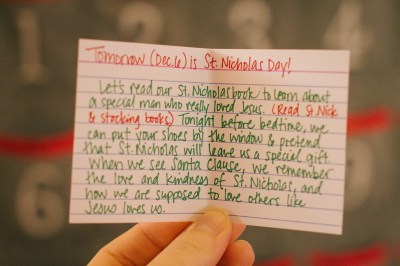 Tomorrow (Dec. 6) is St. Nicholas Day!
Let's read our St. Nicholas book to learn about
a special man who really loved Jesus. (Read St. Nick
& stocking books) Tonight before bedtime, we
can put your shoes by the window & pretend
that St. Nicholas will leave us a special gift.
When we see Santa Clause, we remember
the love and kindness of St. Nicholas, and
how we are supposed to love others like
Jesus loves us.
1
6